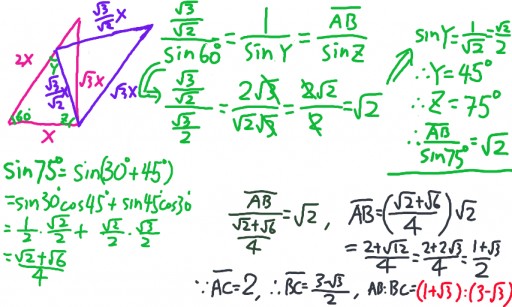 √3/√2 x
2x
Y
√3/√2 x
√3x
√3x
60°
Z
x
(√3/√2)/sin60° = 1/sinY = AB̅/sinZ
(√3/√2)/(√3/2) = 2√3/√2√3 = 2√2/2 = √2
sinY = 1/√2 = √2/2
∴Y = 45°
∴Z = 75°
∴AB̅/sin75° = √2
sin75° = sin(30°+45°)
= sin30°cos45° + sin45°cos30°
= 1/2 · √2/2 + √2/2 · √3/2
= (√2+√6)/4
AB̅/((√2+√6)/4) = √2, AB̅ = ((√2+√6)/4)√2
= (2+√12)/4 = (2+2√3)/4 = (1+√3)/2
∵AC̅ = 2, ∴BC̅ = (3-√3)/2, AB:BC = (1+√3):(3-√3)